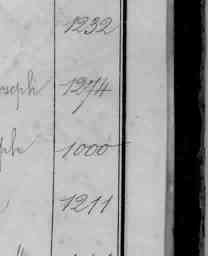 1232
oseph 1274
ph 1000
1211
"